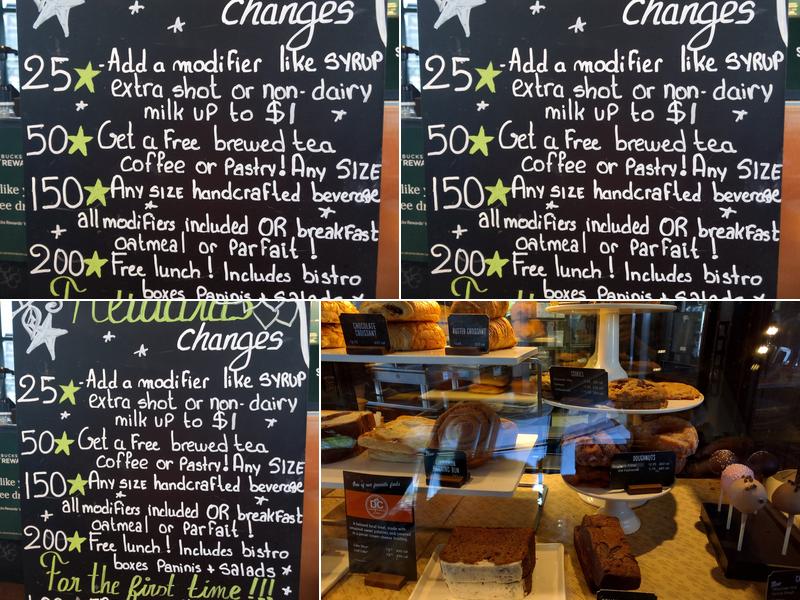 changes
25★ - Add a modifier like SYRUP
extra shot or non-dairy
milk up to $1
50★ Get a Free brewed tea
coffee or Pastry! Any SIZE
150★ Any SIZE handcrafted beverage
all modifiers included OR breakfast
oatmeal or Parfait!
200★ Free lunch! Includes bistro
boxes Paninis + Salads
changes
25★ - Add a modifier like SYRUP
extra shot or non-dairy
milk up to $1
50★ Get a Free brewed tea
coffee or Pastry! Any SIZE
150★ Any SIZE handcrafted beverage
all modifiers included OR breakfast
oatmeal or Parfait!
200★ Free lunch! Includes bistro
boxes Paninis + Salads
Rewards
changes
25★ - Add a modifier like SYRUP
extra shot or non-dairy
milk up to $1
50★ Get a Free brewed tea
coffee or Pastry! Any SIZE
150★ Any SIZE handcrafted beverage
+ all modifiers included OR breakfast
oatmeal or Parfait!
200★ Free lunch! Includes bistro
boxes Paninis + Salads
For the first time!!!
CHOCOLATE
CROISSANT
BUTTER CROISSANT
COOKIES
DOUGHNUTS
One of our favorite foods